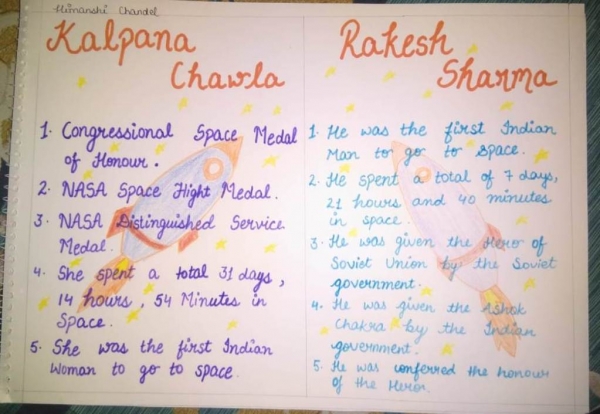 Himanshi Chandel
Kalpana
Chawla
1. Congressional Space Medal
of Honour.
2. NASA Space Flight Medal.
3. NASA Distinguished Service
Medal.
4. She spent a total 31 days,
14 hours, 54 Minutes in
Space.
5. She was the first Indian
Woman to go to space.
Rakesh
Sharma
1. He was the first Indian
Man to go to space.
2. He spent a total of 7 days,
21 hours and 40 minutes
in space.
3. He was given the Hero of
Soviet Union by the Soviet
government.
4. He was given the Ashok
Chakra by the Indian
government.
5. He was conferred the honour
of the Heror.